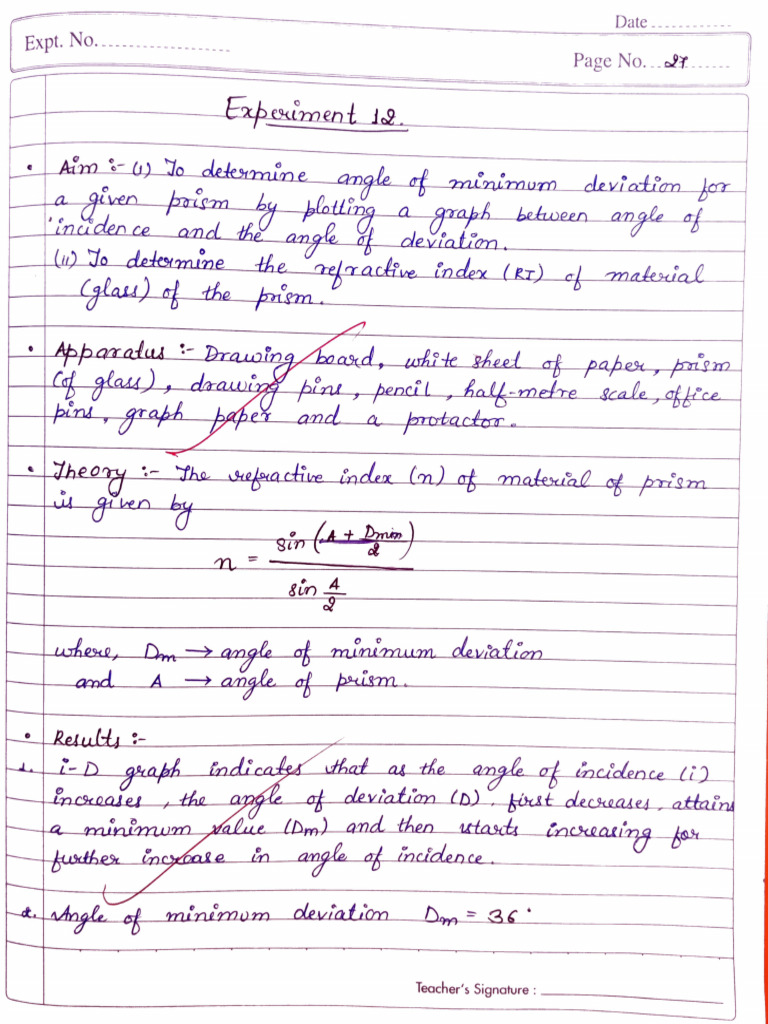 Date ............
Expt. No. ......................
Page No. .. 27 .......
Experiment 12.
• Aim :- (i) To determine angle of minimum deviation for
a given prism by plotting a graph between angle of
incidence and the angle of deviation.
(ii) To determine the refractive index (RI) of material
(glass) of the prism.
• Apparatus :- Drawing board, white sheet of paper, prism
(of glass), drawing pins, pencil, half-metre scale, office
pins, graph paper and a protactor.
• Theory :- The refractive index (n) of material of prism
is given by
n = sin (A + Dmin / 2) / sin A/2
where, Dm → angle of minimum deviation
and A → angle of prism.
• Results :-
1. i-D graph indicates that as the angle of incidence (i)
increases, the angle of deviation (D), first decreases, attains
a minimum value (Dm) and then starts increasing for
further increase in angle of incidence.
2. Angle of minimum deviation Dm = 36°
Teacher's Signature : ____________________